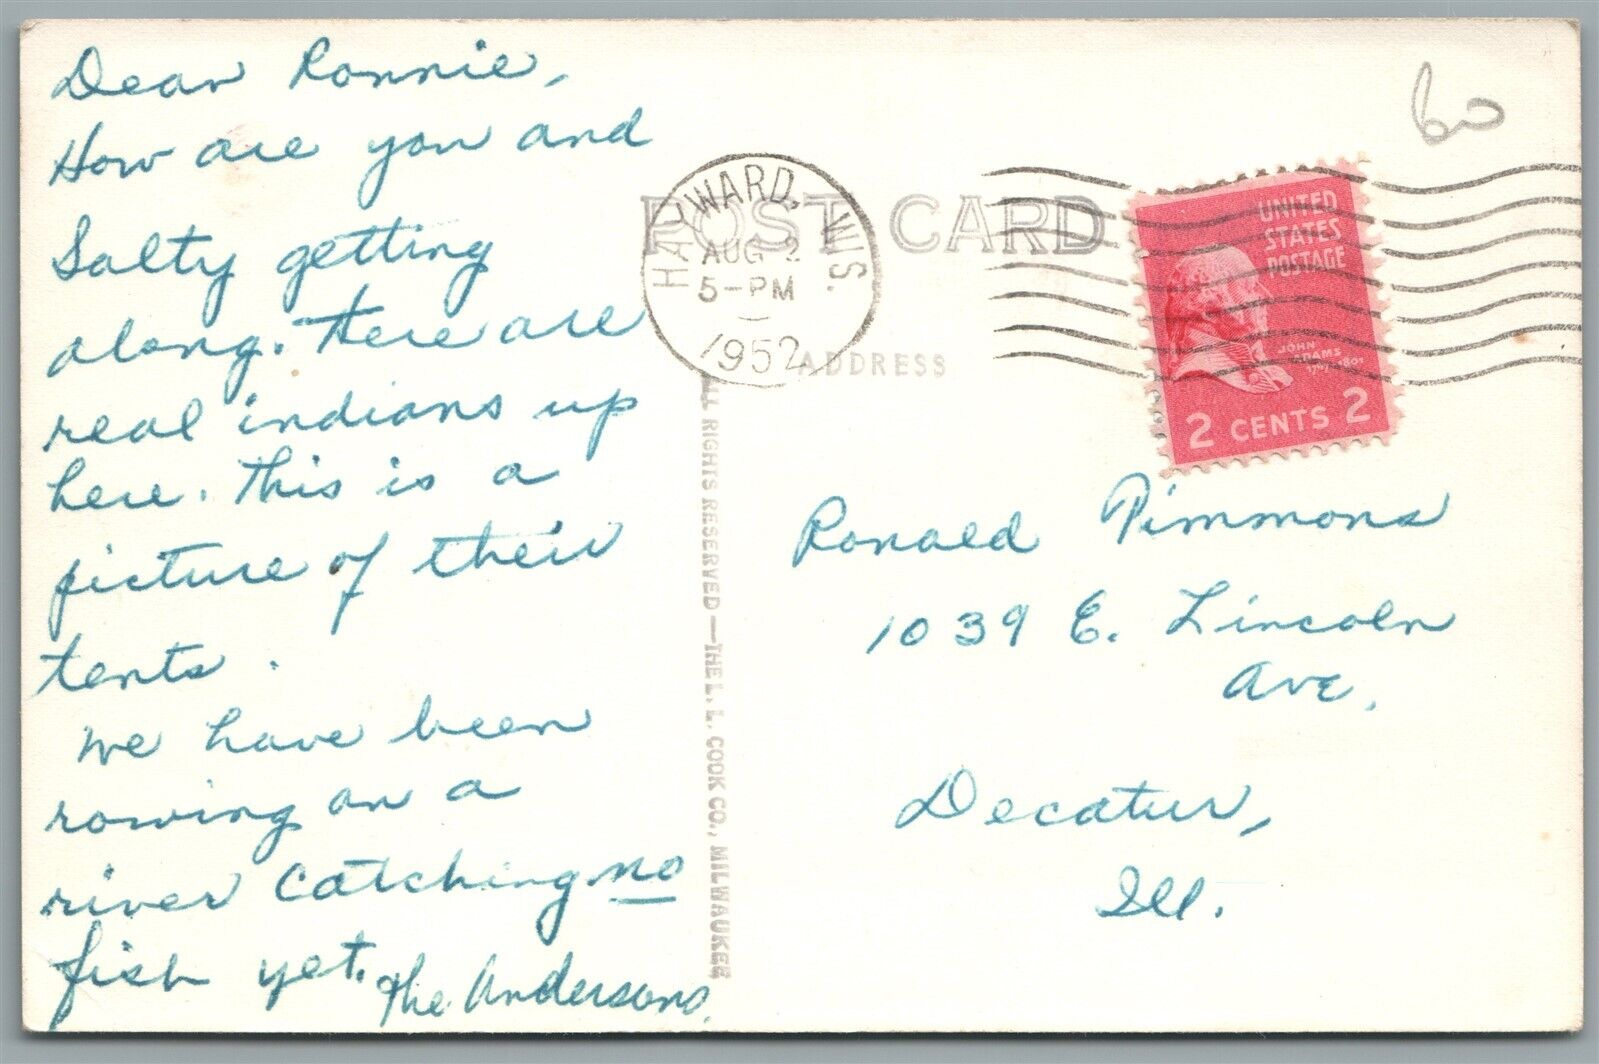 Dear Ronnie,
How are you and
Salty getting
along. There are
real indians up
here. This is a
picture of their
tents.
We have been
rowing on a
river catching no
fish yet. The Andersons.
60
POST CARD
HAYWARD, WIS.
AUG 2
5-PM
1952
ADDRESS
UNITED
STATES
POSTAGE
JOHN
ADAMS
2 CENTS 2
ALL RIGHTS RESERVED—THE L. L. COOK CO., MILWAUKEE
Ronald Timmons
1039 E. Lincoln
Ave.
Decatur,
Ill.